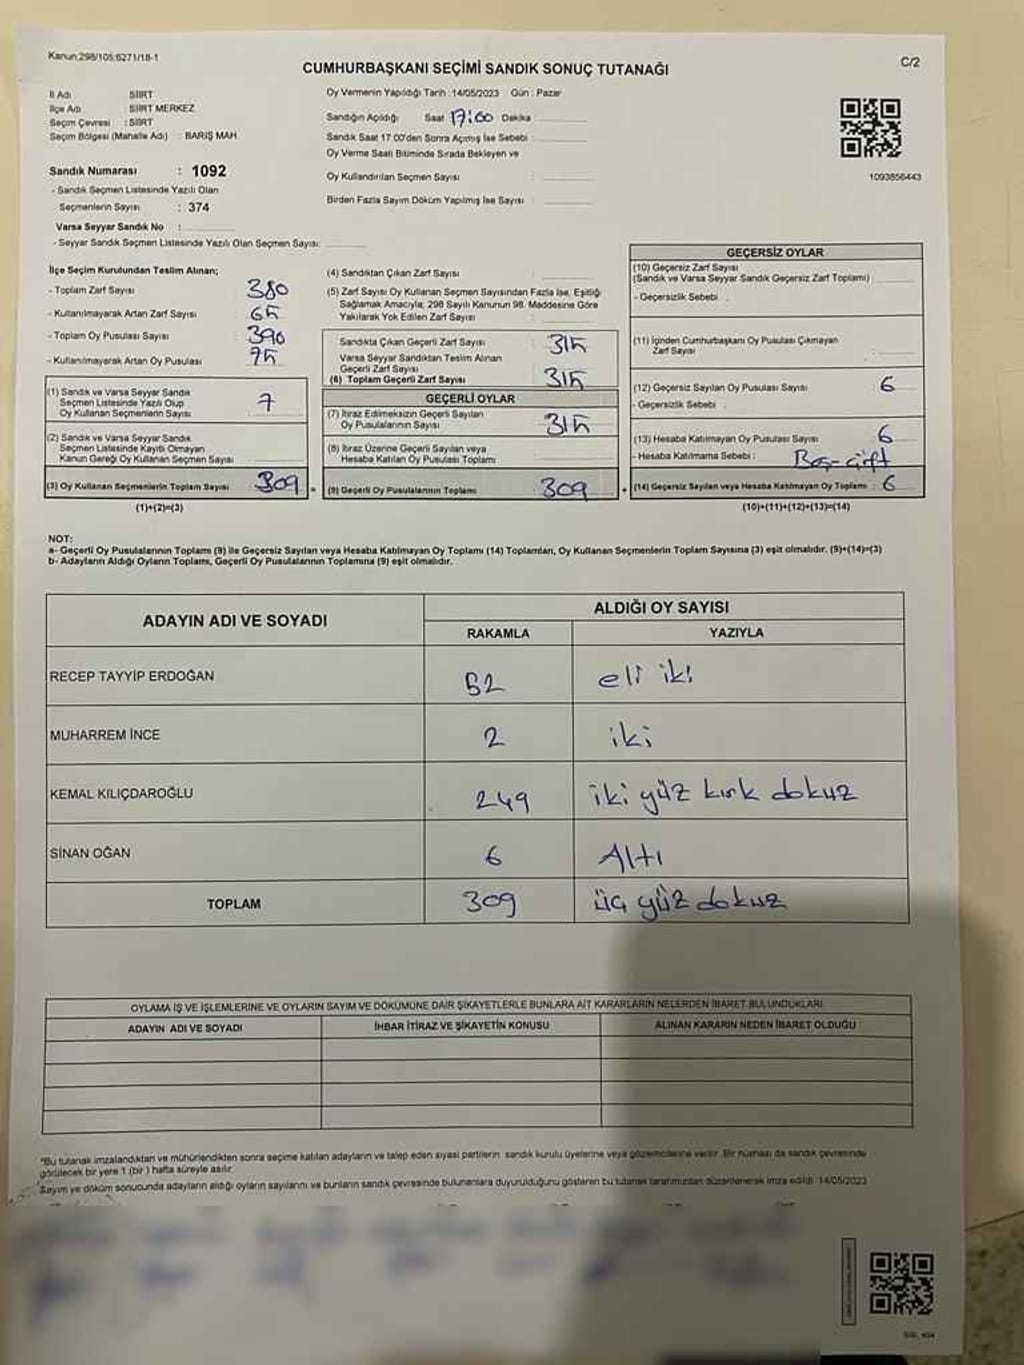 Kanun:298/105;6271/18-1
C/2
CUMHURBAŞKANI SEÇİMİ SANDIK SONUÇ TUTANAĞI
İl Adı SİİRT
İlçe Adı SİİRT MERKEZ
Seçim Çevresi : SİİRT
Seçim Bölgesi (Mahalle Adı) : BARIŞ MAH
Sandık Numarası : 1092
- Sandık Seçmen Listesinde Yazılı Olan
Seçmenlerin Sayısı : 374
Varsa Seyyar Sandık No :
- Seyyar Sandık Seçmen Listesinde Yazılı Olan Seçmen Sayısı:
Oy Vermenin Yapıldığı Tarih :14/05/2023 Gün : Pazar
Sandığın Açıldığı Saat 17:00 Dakika
Sandık Saat 17.00'den Sonra Açmış İse Sebebi :
Oy Verme Saati Bitiminde Sırada Bekleyen ve
Oy Kullandırılan Seçmen Sayısı :
Birden Fazla Sayım Döküm Yapılmış İse Sayısı :
1093856443
İlçe Seçim Kurulundan Teslim Alınan;
- Toplam Zarf Sayısı 380
- Kullanılmayarak Artan Zarf Sayısı : 65
- Toplam Oy Pusulası Sayısı : 390
- Kullanılmayarak Artan Oy Pusulası : 75
(1) Sandık ve Varsa Seyyar Sandık
Seçmen Listesinde Yazılı Olup
Oy Kullanan Seçmenlerin Sayısı : 7
(2) Sandık ve Varsa Seyyar Sandık
Seçmen Listesinde Kayıtlı Olmayan
Kanun Gereği Oy Kullanan Seçmen Sayısı :
(3) Oy Kullanan Seçmenlerin Toplam Sayısı 309
(1)+(2)=(3)
(4) Sandıktan Çıkan Zarf Sayısı :
(5) Zarf Sayısı Oy Kullanan Seçmen Sayısından Fazla İse, Eşitliği
Sağlamak Amacıyla; 298 Sayılı Kanunun 98. Maddesine Göre
Yakılarak Yok Edilen Zarf Sayısı :
Sandıkta Çıkan Geçerli Zarf Sayısı : 315
Varsa Seyyar Sandıktan Teslim Alınan
Geçerli Zarf Sayısı :
(6) Toplam Geçerli Zarf Sayısı 315
GEÇERLİ OYLAR
(7) İtiraz Edilmeksizin Geçerli Sayılan
Oy Pusulalarının Sayısı : 315
(8) İtiraz Üzerine Geçerli Sayılan veya
Hesaba Katılan Oy Pusulası Toplamı :
(9) Geçerli Oy Pusulalarının Toplamı : 309
GEÇERSİZ OYLAR
(10) Geçersiz Zarf Sayısı
(Sandık ve Varsa Seyyar Sandık Geçersiz Zarf Toplamı)
- Geçersizlik Sebebi :
(11) İçinden Cumhurbaşkanı Oy Pusulası Çıkmayan
Zarf Sayısı
(12) Geçersiz Sayılan Oy Pusulası Sayısı : 6
- Geçersizlik Sebebi :
(13) Hesaba Katılmayan Oy Pusulası Sayısı : 6
- Hesaba Katılmama Sebebi : Boş-çift
(14) Geçersiz Sayılan veya Hesaba Katılmayan Oy Toplamı : 6
(10)+(11)+(12)+(13)=(14)
NOT:
a- Geçerli Oy Pusulalarının Toplamı (9) ile Geçersiz Sayılan veya Hesaba Katılmayan Oy Toplamı (14) Toplamları, Oy Kullanan Seçmenlerin Toplam Sayısına (3) eşit olmalıdır. (9)+(14)=(3)
b- Adayların Aldığı Oyların Toplamı, Geçerli Oy Pusulalarının Toplamına (9) eşit olmalıdır.
ADAYIN ADI VE SOYADI
ALDIĞI OY SAYISI
RAKAMLA YAZIYLA
RECEP TAYYİP ERDOĞAN 52 eli iki
MUHARREM İNCE 2 iki
KEMAL KILIÇDAROĞLU 249 iki yüz kırk dokuz
SİNAN OĞAN 6 Altı
TOPLAM 309 üç yüz dokuz
OYLAMA İŞ VE İŞLEMLERİNE VE OYLARIN SAYIM VE DÖKÜMÜNE DAİR ŞİKAYETLERLE BUNLARA AİT KARARLARIN NELERDEN İBARET BULUNDUKLARI
ADAYIN ADI VE SOYADI İHBAR İTİRAZ VE ŞİKAYETİN KONUSU ALINAN KARARIN NEDEN İBARET OLDUĞU
*Bu tutanak imzalandıktan ve mühürlendikten sonra seçime katılan adayların ve talep eden siyasi partilerin sandık kurulu üyelerine veya gözlemcilerine verilir. Bir nüshası da sandık çevresinde
görülecek bir yere 1 (bir) hafta süreyle asılır.
Sayım ve döküm sonucunda adayların aldığı oyların sayılarını ve bunların sandık çevresinde bulunanlara duyurulduğunu gösteren bu tutanak tarafımızdan düzenlenerek imza edildi. 14/05/2023